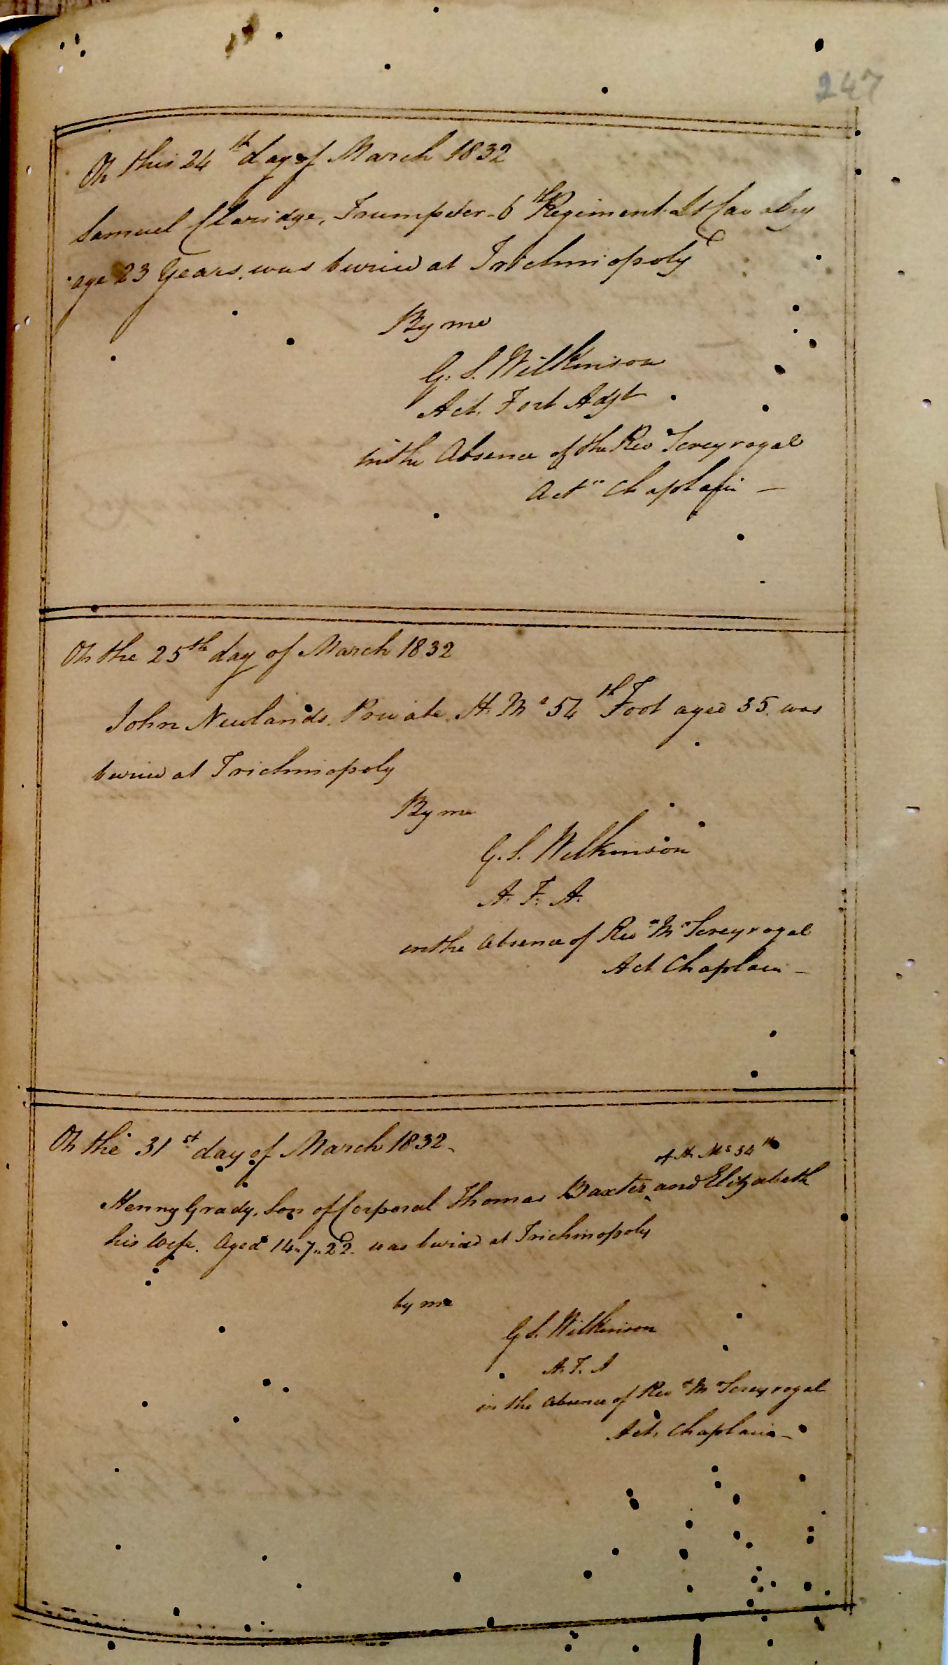 247
On this 24th day of March 1832
Samuel Claridge, Trumpeter 6th Regiment Lt Cavalry
age 23 Years, was buried at Trichinopoly
By me
G. S. Wilkinson
Act. Fort Adjt
in the Absence of the Revd
Actg Chaplain —
On the 25th day of March 1832
John Newlands, Private, H. Ms 54th Foot aged 35 was
buried at Trichinopoly
By me
G. S. Wilkinson
A. F. A.
in the absence of Revd Mr
Act Chaplain —
On the 31st day of March 1832 —
of H. Ms 54th
Henry Grady, Son of Corporal Thomas Baxter and Elizabeth
his Wife. Aged 14..7..22. was buried at Trichinopoly
by me
G. S. Wilkinson
A. F. A
in the absence of Revd Mr
Act. Chaplain —